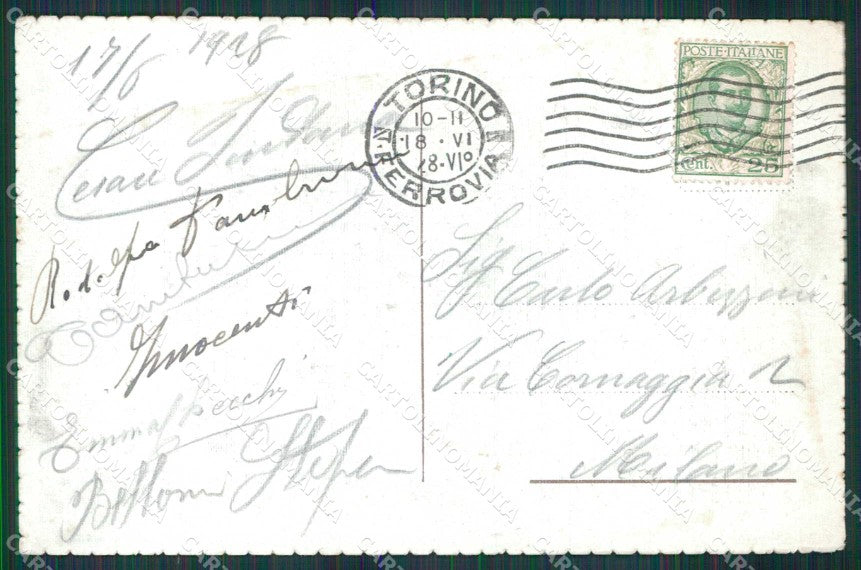 17/6 1928
Cesare
Rodolfo Tamburini
Tamburini
Innocenti
Emma Specchi
Bettoni
TORINO
10-11
18 · VI
28·VI°
N. FERROVIA
POSTE·ITALIANE
Cent. 25
Sig Carlo Arbizzoni
Via Cornaggia 2
Milano
CARTOLINOMANIA